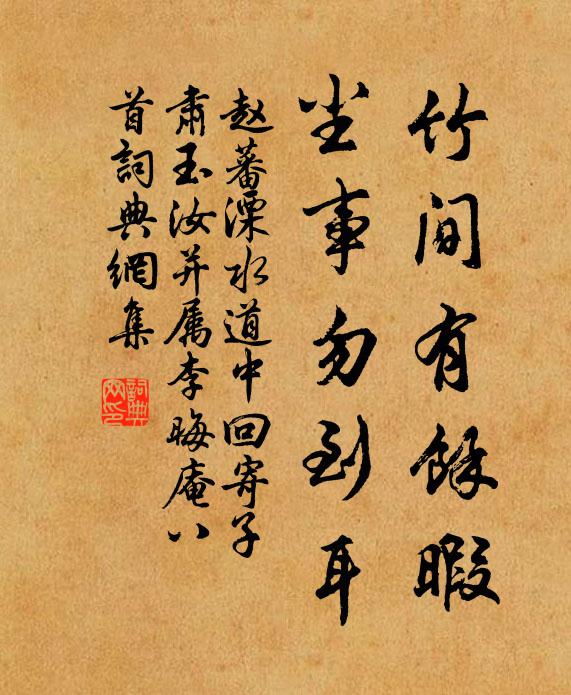 竹間有餘暇
尘事勿到耳
赵蕃溧水道中回寄子
肃玉汝并属李晦庵八
首詞典網集
詞典網印